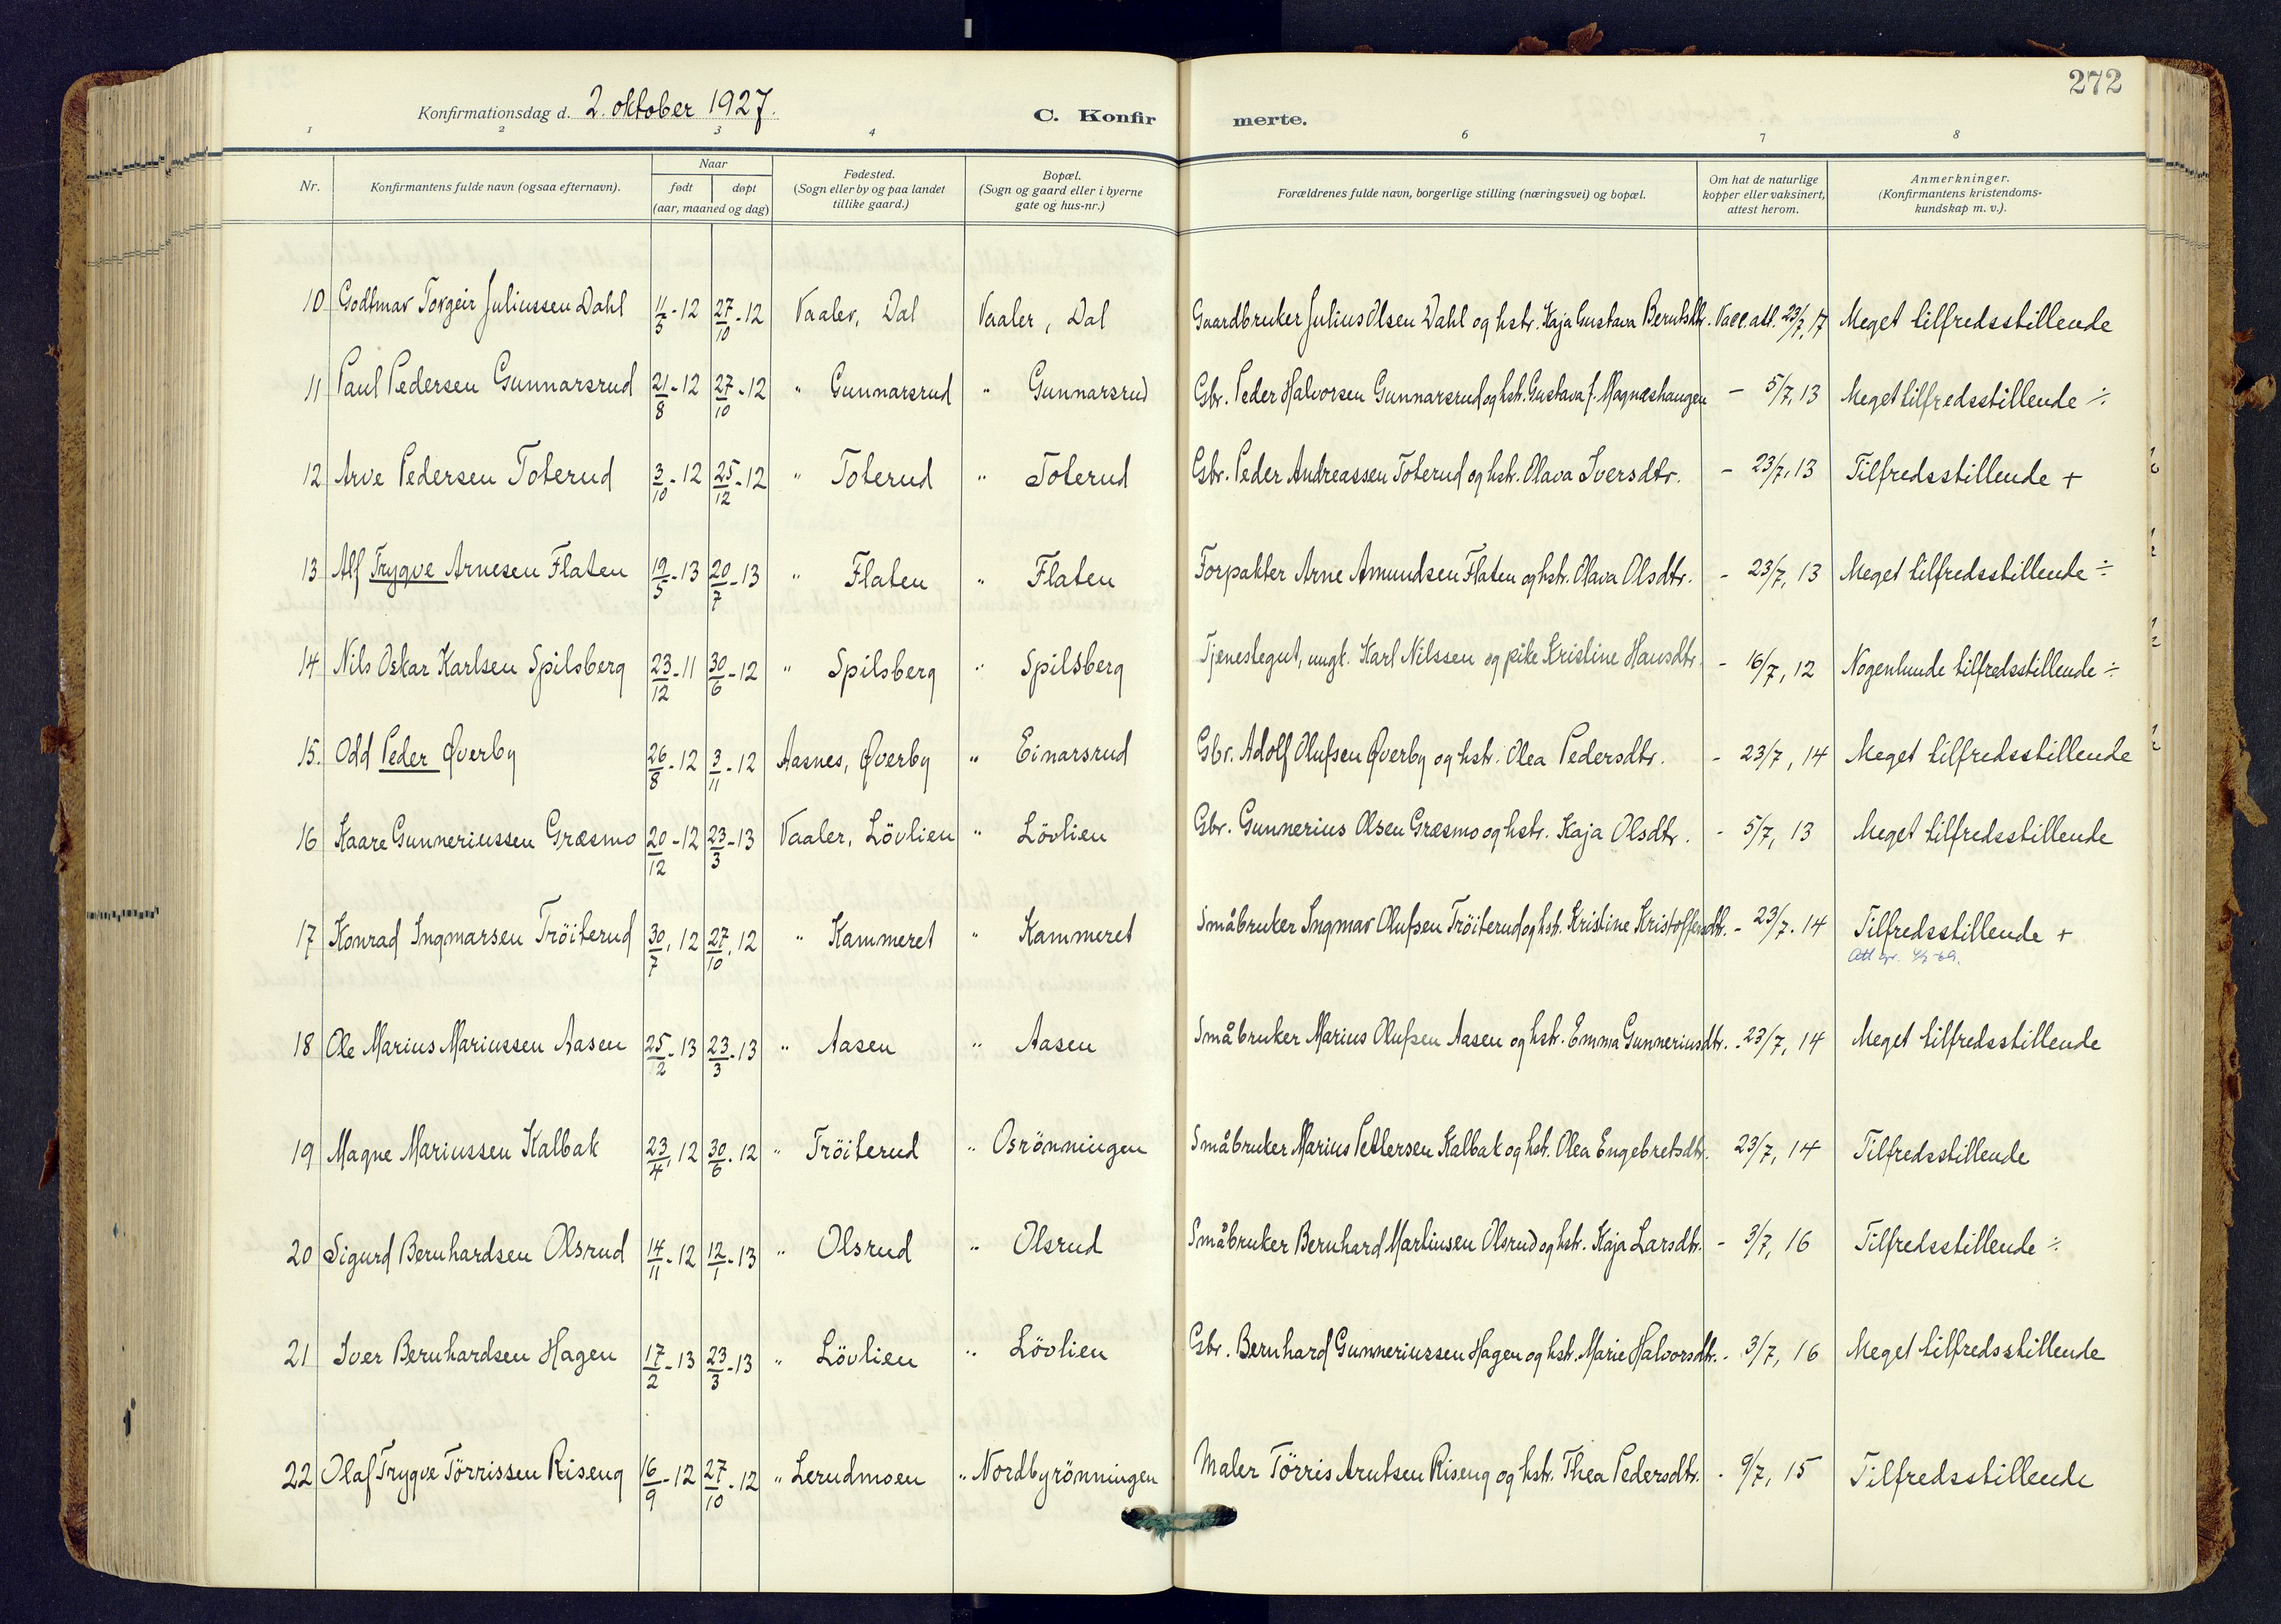 272
Konfirmationsdag d. 2. oktober 1927.
C. Konfir merte.
1 2 3 4 6 7 8
Nr.
Konfirmantens fulde navn (ogsaa efternavn).
Naar
født døpt
(aar, maaned og dag)
Fødested.
(Sogn eller by og paa landet
tillike gaard.)
Bopæl.
(Sogn og gaard eller i byerne
gate og hus-nr.)
Forældrenes fulde navn, borgerlige stilling (næringsvei) og bopæl.
Om hat de naturlige
kopper eller vaksinert,
attest herom.
Anmerkninger.
(Konfirmantens kristendoms-
kundskap m. v.).
10 Godtmar Torgeir Juliussen Dahl 11/5-12 27/10-12 Vaaler, Dal Vaaler, Dal Gaardbruker Julius Olsen Dahl og hstr. Kaja Gustava Berntsdtr. Vacc. att. 23/7, 17 Meget tilfredsstillende
11 Paul Pedersen Gunnarsrud 21/8-12 27/10-12 " Gunnarsrud " Gunnarsrud Gbr. Peder Halvorsen Gunnarsrud og hstr. Gustava f. Magneshaugen - 5/7, 13 Meget tilfredsstillende ÷
12 Arve Pedersen Toterud 3/10-12 25/12-12 " Toterud " Toterud Gbr. Peder Andreassen Toterud og hstr. Olava Iversdtr. - 23/7, 13 Tilfredsstillende +
13 Alf Trygve Arnesen Flaten 19/5-13 20/7-13 " Flaten " Flaten Forpakter Arne Amundsen Flaten og hstr. Olava Olsdtr. - 23/7, 13 Meget tilfredsstillende ÷
14 Nils Oskar Karlsen Spilsberg 23/12-11 30/6-12 " Spilsberg " Spilsberg Tjenestegut, ungk. Karl Nilssen og pike Kristine Hansdtr. - 16/7, 12 Nogenlunde tilfredsstillende ÷
15. Odd Peder Øverby 26/8-12 3/11-12 Aasnes, Øverby " Einarsrud Gbr. Adolf Olufsen Øverby og hstr. Olea Pedersdtr. - 23/7, 14 Meget tilfredsstillende
16 Kaare Gunneriussen Græsmo 20/12-12 23/3-13 Vaaler, Lövlien " Lövlien Gbr. Gunnerius Olsen Græsmo og hstr. Kaja Olsdtr. - 5/7, 13 Meget tilfredsstillende
17 Konrad Ingmarsen Tröiterud 30/7, 12 27/10, 12 " Kammeret " Kammeret Småbruker Ingmar Olufsen Tröiterud og hstr. Kristine Kristoffersdtr. - 23/7. 14 Tilfredsstillende +
18 Ole Marius Mariussen Aasen 25/2-13 23/3-13 " Aasen " Aasen Småbruker Marius Olufsen Aasen og hstr. Emma Gunneriusdtr. - 23/7, 14 Meget tilfredsstillende
19 Magne Mariussen Kalbak 23/4, 12 30/6. 12 " Tröiterud " Osrönningen Småbruker Marius Pettersen Kalbak og hstr. Olea Engebretsdtr. 23/7, 14 Tilfredsstillende
20 Sigurd Bernhardsen Olsrud 14/11-12 12/1-13 " Olsrud " Olsrud Småbruker Bernhard Martinsen Olsrud og hstr. Kaja Larsdtr. - 3/7, 16 Tilfredsstillende ÷
21 Iver Bernhardsen Hagen 17/2-13 23/3-13 " Lövlien " Lövlien Gbr. Bernhard Gunneriussen Hagen og hstr. Marie Halvorsdtr. - 3/7, 16 Meget tilfredsstillende
22 Olaf Trygve Törrissen Riseng 16/9-12 27/10-12 " Lerudmoen " Nordbyrönningen Maler Törris Arntsen Riseng og hstr. Thea Pedersdtr. - 9/7, 15 Tilfredsstillende